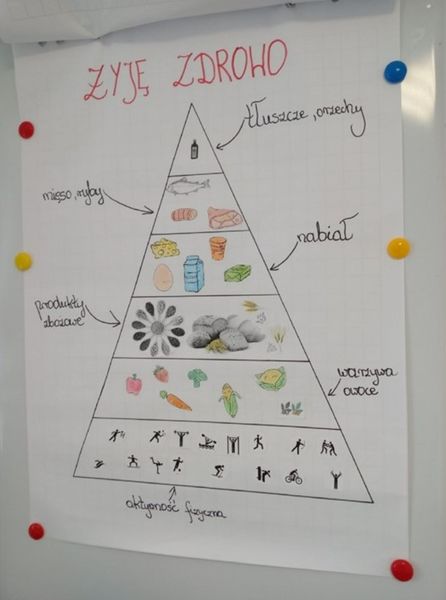 ŻYJĘ ZDROWO
tłuszcze, orzechy
mięso, ryby
nabiał
produkty
zbożowe
warzywa
owoce
aktywność fizyczna